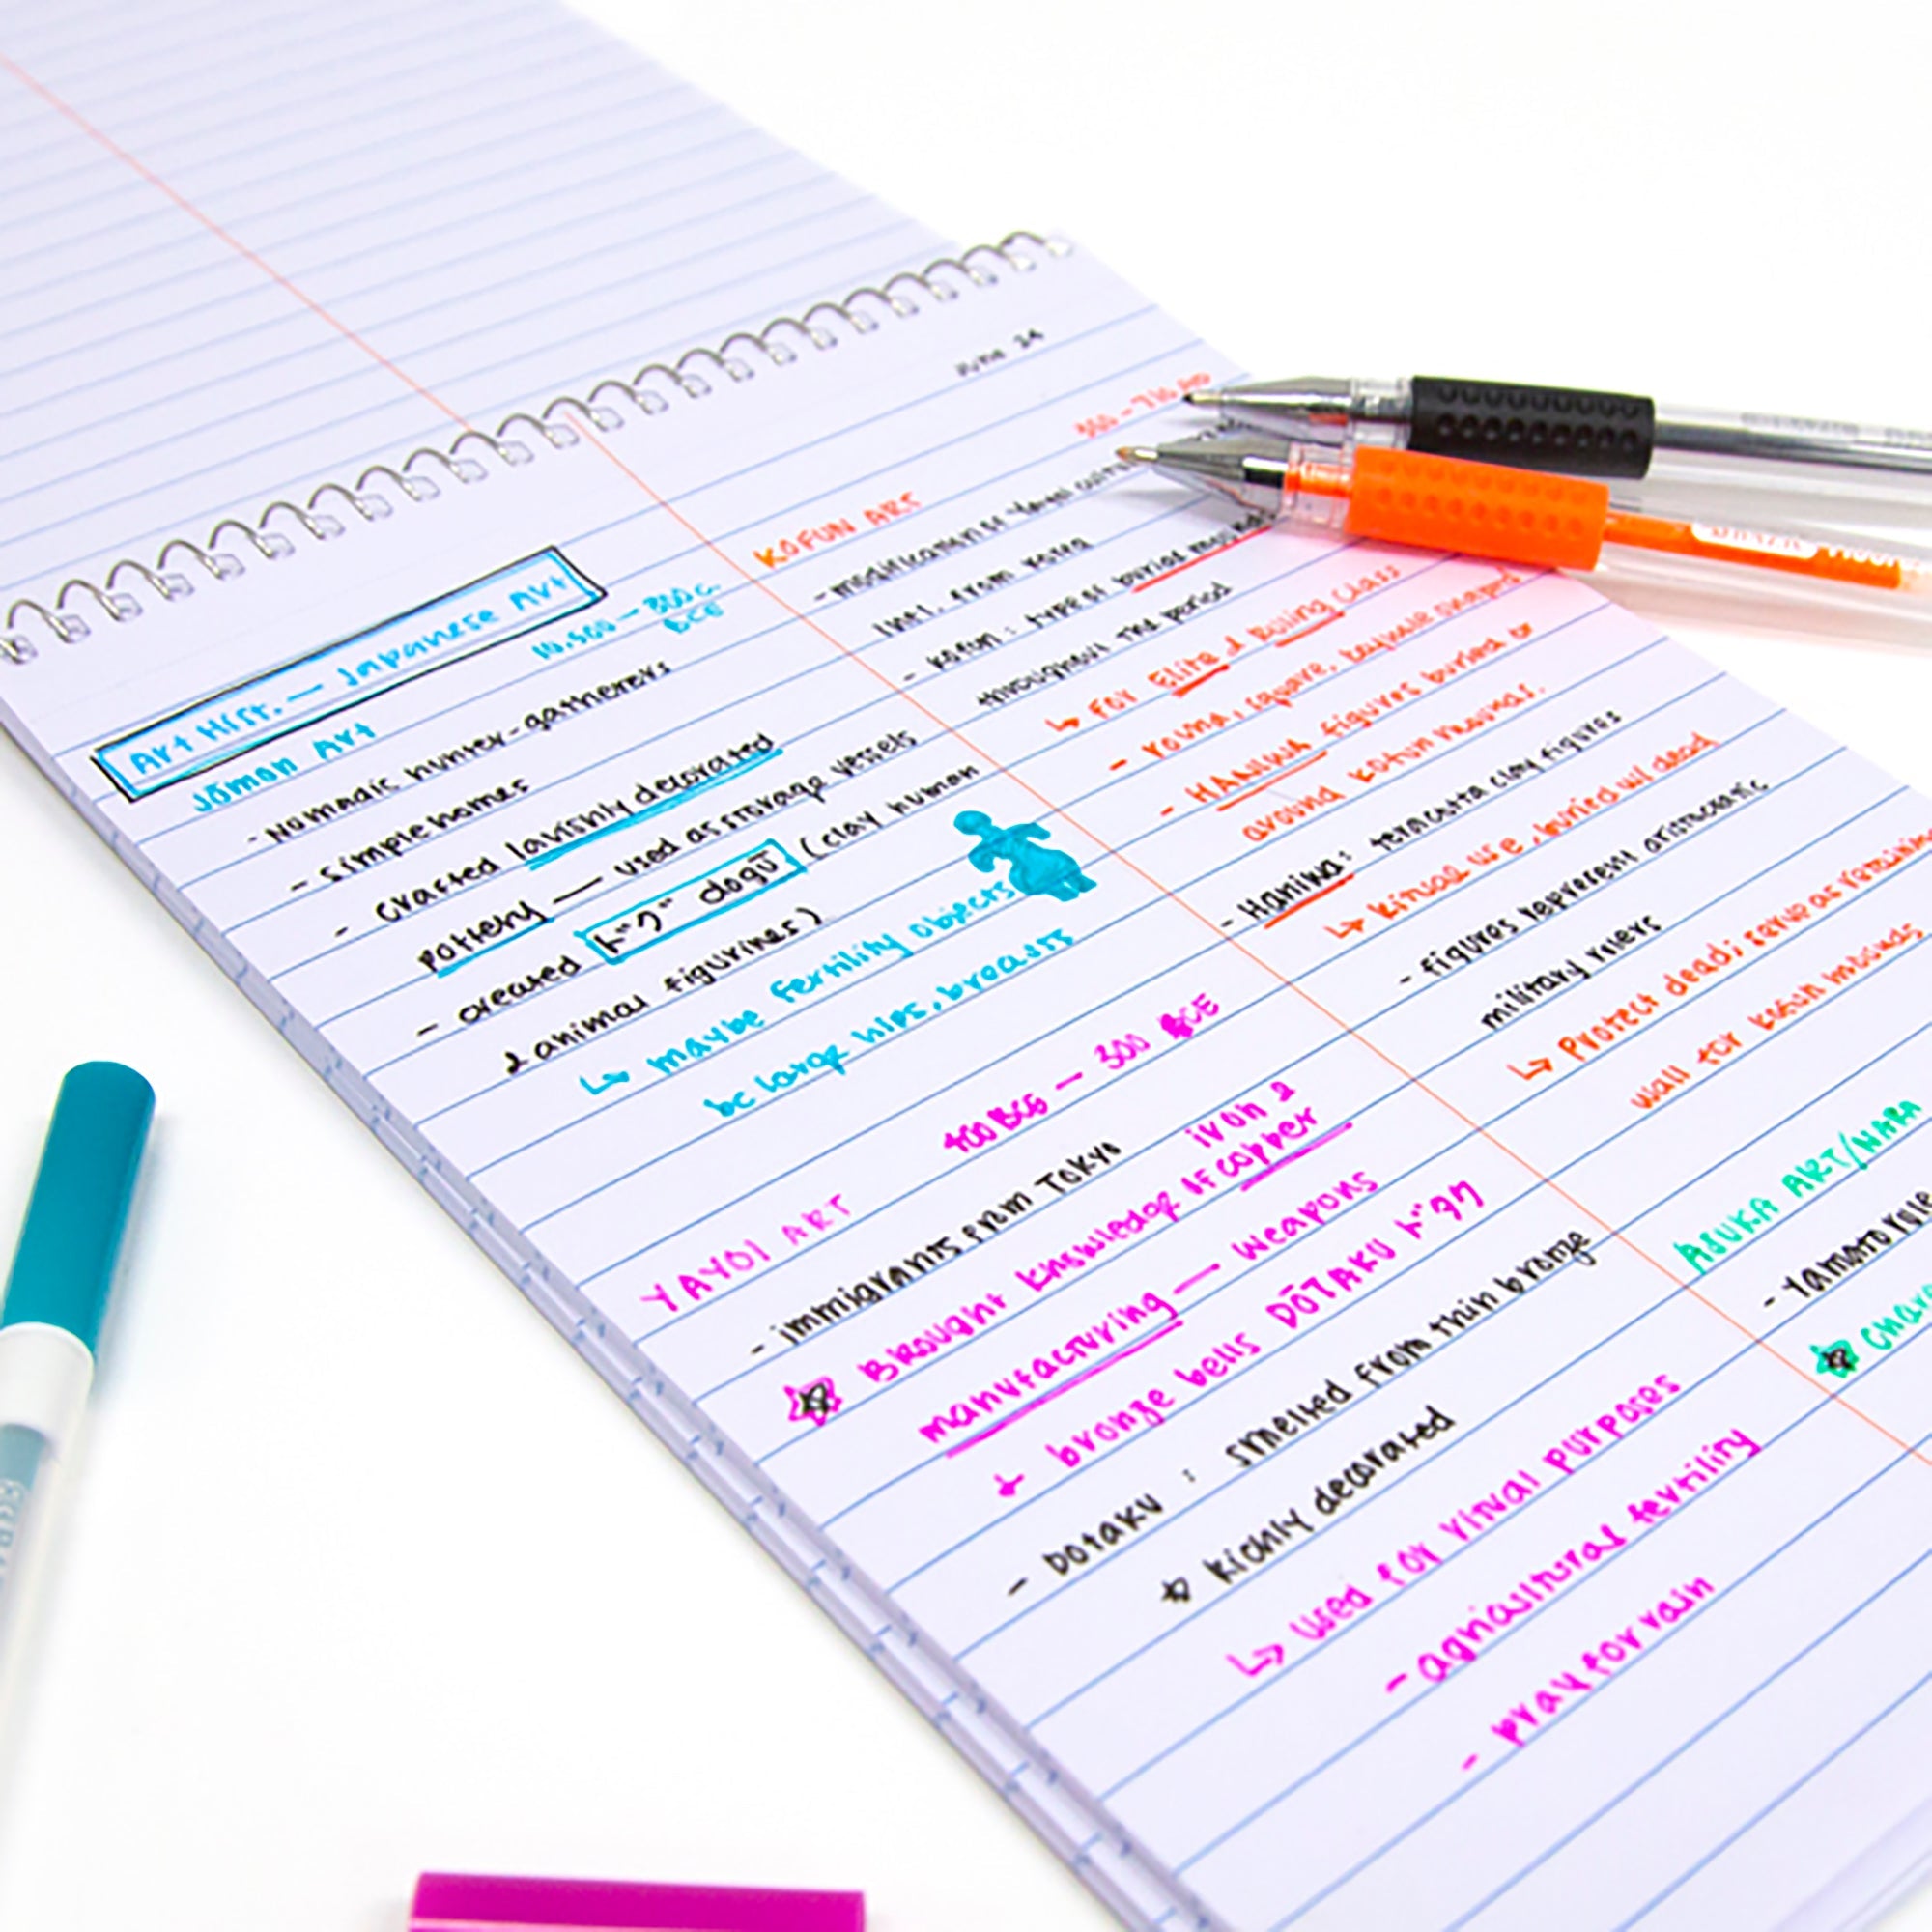 June 24
Art Hist. — Japanese Art
Jōman Art 10,500 — 300 c. BCE
- Nomadic hunter-gatherers
- simple homes
- crafted lavishly decorated
pottery — used as storage vessels
- created ドグ dogū (clay human
& animal figurines)
↳ maybe fertility objects
bc large hips, breasts
YAYOI ART 400 BCE — 300 BCE
- immigrants from Tokyo
☆ Brought knowledge of iron & copper
manufacturing — weapons
+ bronze bells DŌTAKU ドグη
- Dotaku : smelted from thin bronze
☆ Richly decorated
↳ used for ritual purposes
- agricultural fertility
- pray for rain
KOFUN ARS 300 - 710 AD
- modification of Yayoi
Intl. from
- kofun : type of buried
throughout the period
↳ For Elite & Ruling class
- round, square, keyhole shaped
- HANIWA figures buried or
around kofun mounds.
- Haniwa: terracotta clay figures
↳ Ritual use, buried w/ dead
- figures represent aristocratic
military rulers
↳ Protect dead; serve as retaining
wall for kofun mounds
ASUKA ART/NARA
- Yamato rule
☆